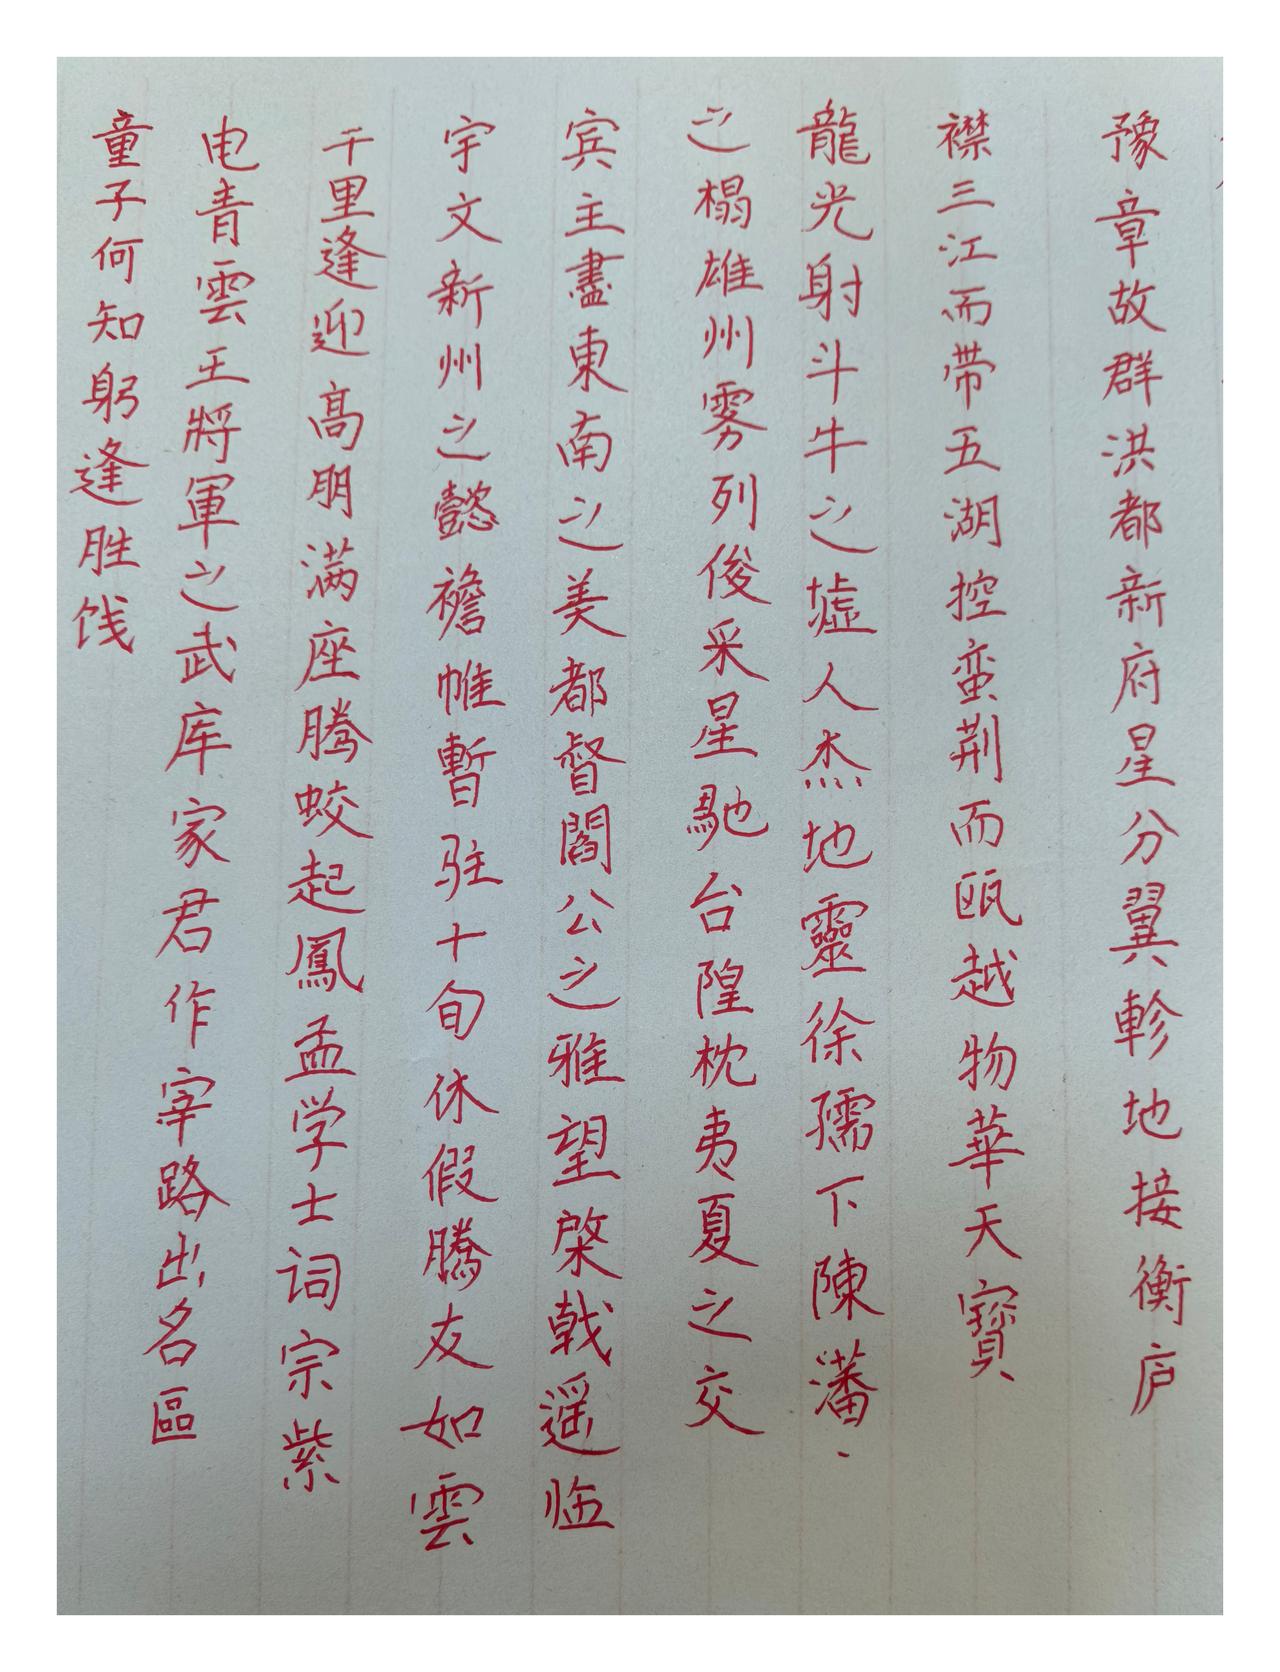 豫章故群洪都新府星分翼軫地接衡庐
襟三江而带五湖控蛮荆而瓯越物華天寳
龍光射斗牛之墟人杰地靈徐孺下陳潘、
之榻雄州雾列俊采星馳台隍枕夷夏之交
宾主盡東南之美都督閻公之雅望棨戟遥临
宇文新州之懿襜帷暫驻十旬休假腾友如雲
千里逢迎高朋满座腾蛟起鳳孟学士词宗紫
电青雲王將軍之武库家君作宰路出名區
童子何知躬逢胜饯